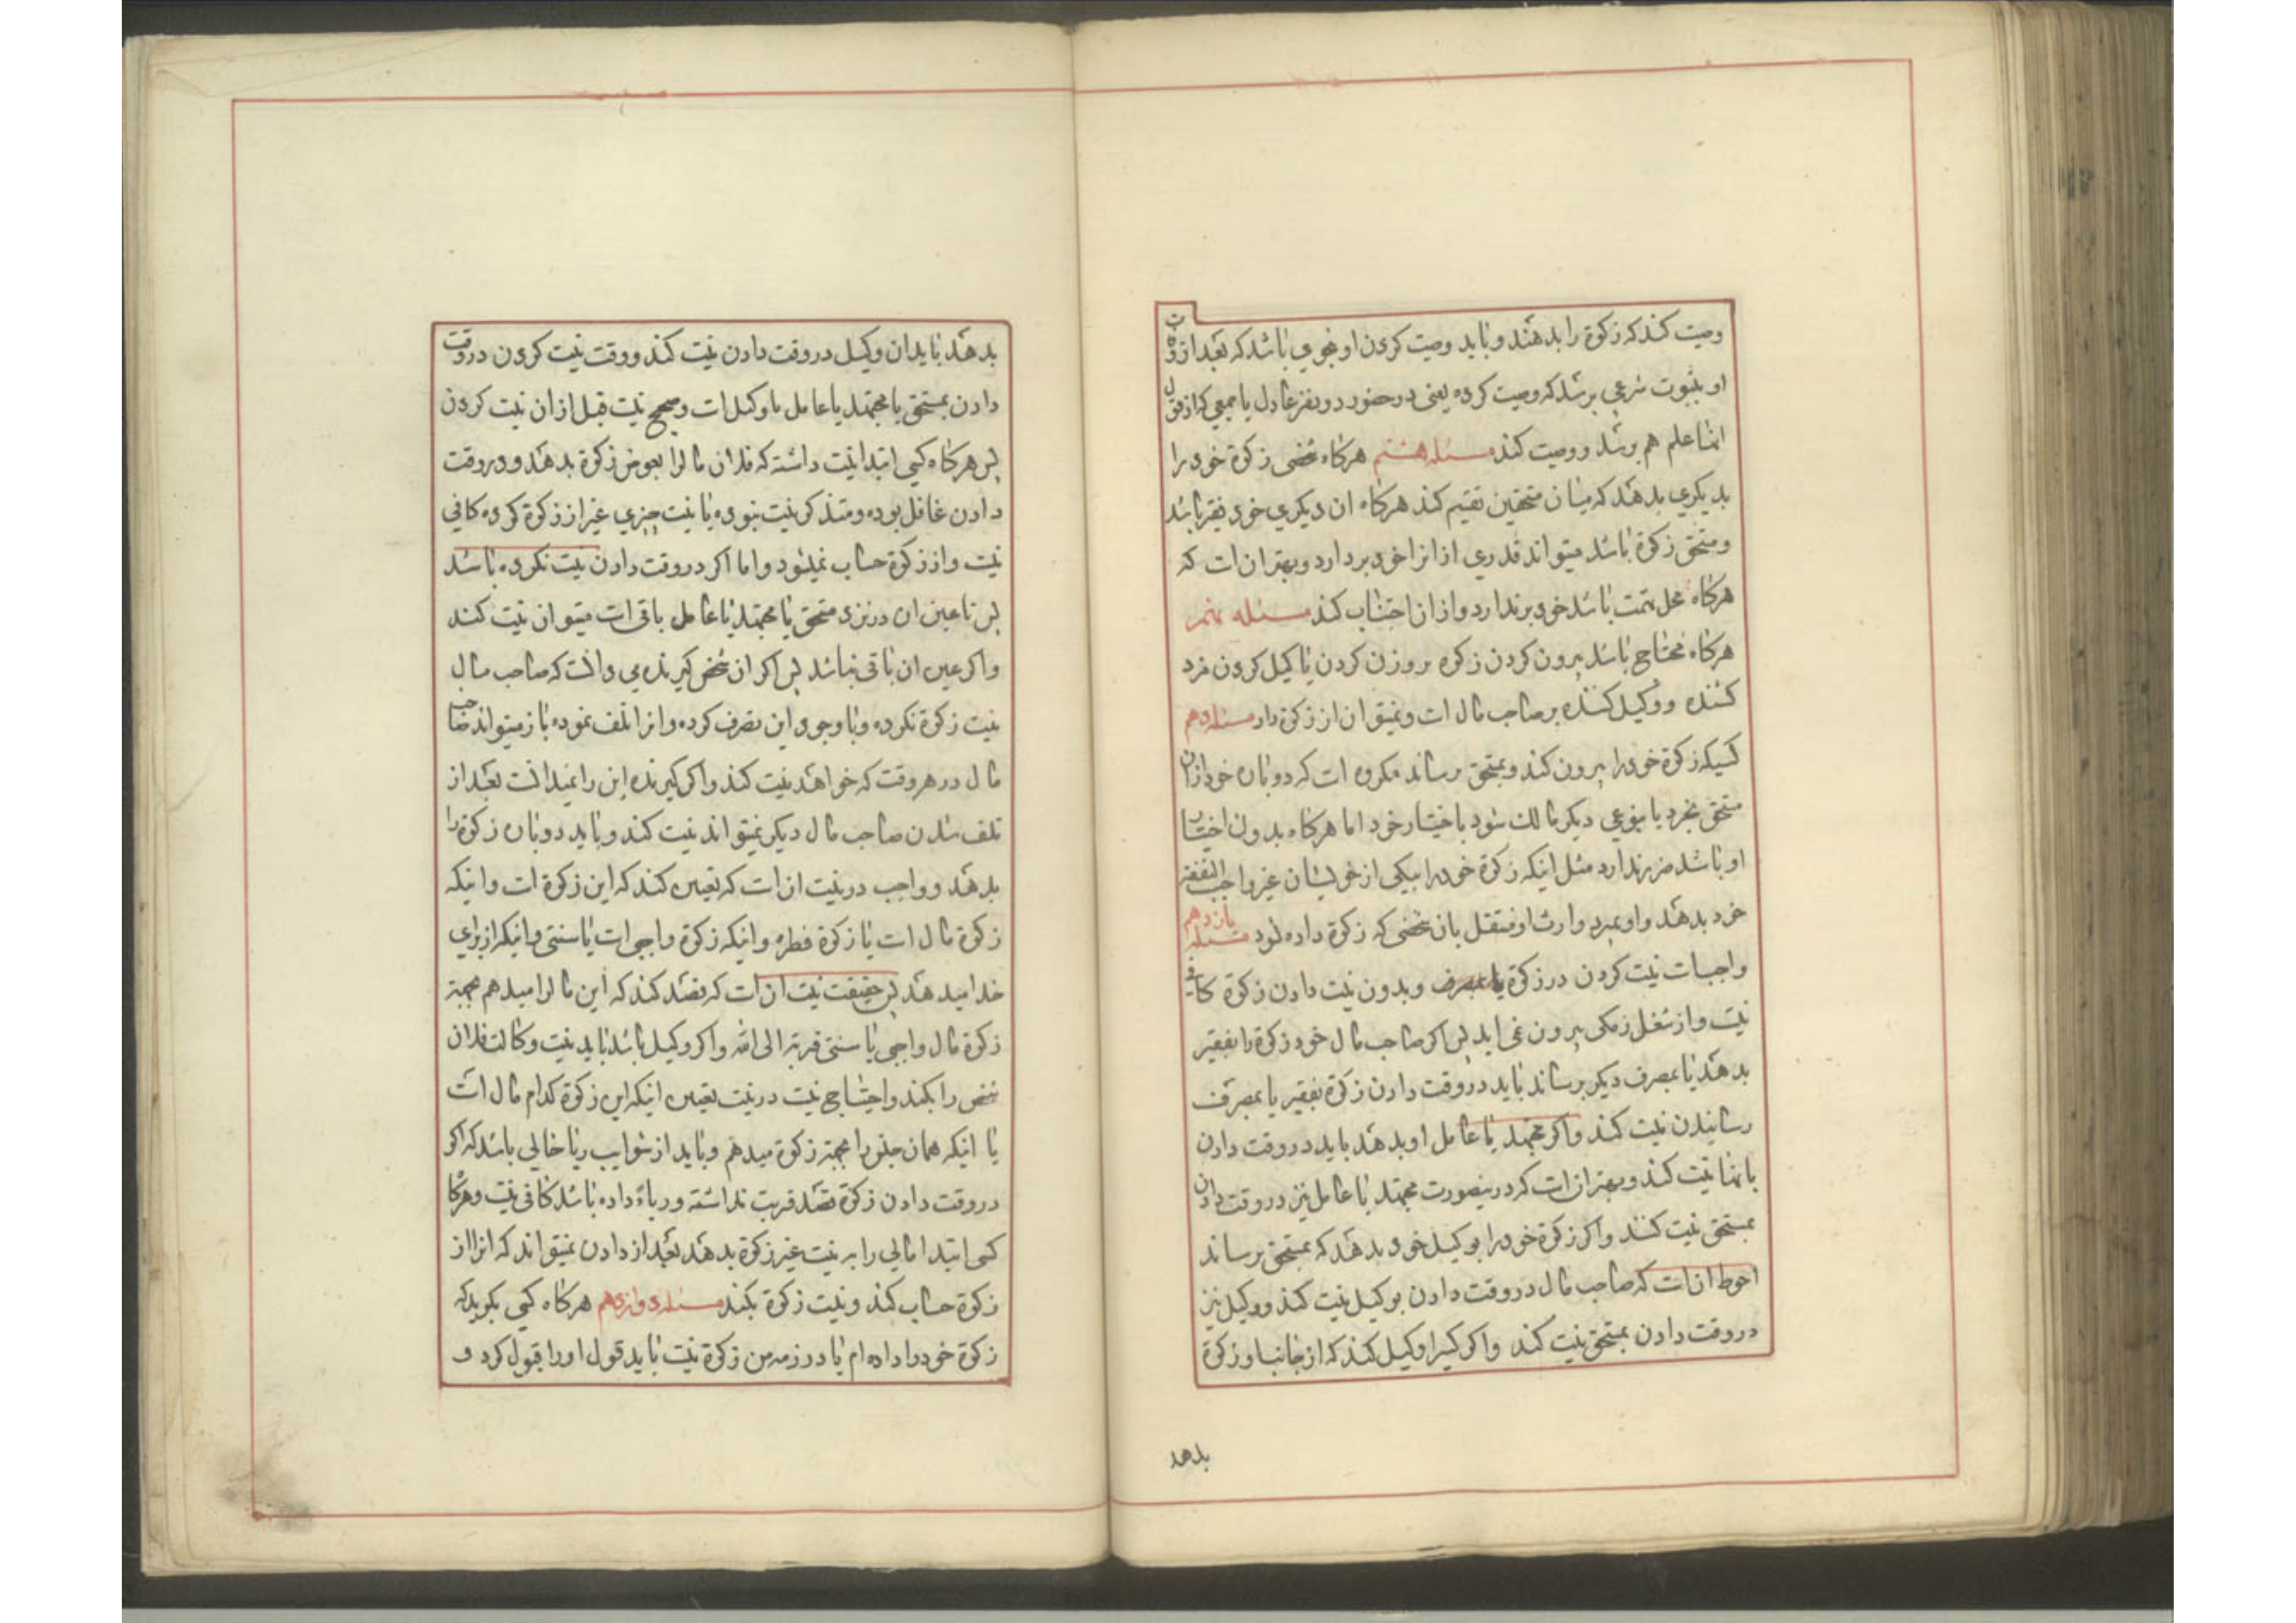 وصیت کند که زکوة را بدهند و باید وصیت کردن او بنحوی باشد که بعد از فوت
او بثبوت شرعی برسد که وصیت کرده یعنی در حضور دو نفر عادل یا جمعی که از قول
انها علم هم برسد و وصیت کند مسئله هشتم هرکاه شخصی زکوة خود را
بدیکری بدهد که میان مستحقین تقسیم کند هرکاه ان دیکری خود فقیر باشد
و مستحق زکوة باشد میتواند قدری از انرا خود بردارد و بهتر ان است که
هرکاه محل تهمت باشد خود برندارد و از ان اجتناب کند مسئله نهم
هرکاه محتاج باشد بیرون کردن زکوة بر وزن کردن یا کیل کردن مزد
کشنده و وکیل کننده بر صاحب مال است و نمیتوان از زکوة داد مسئله دهم
کسیکه زکوة خود را بیرون کند و بمستحق برساند مکروه است که دوباره خود از ان
مستحق بخرد یا بنوعی دیکر مالک شود باختیار خود اما هرکاه بدون اختیار
او باشد ضرر ندارد مثل اینکه زکوة خود را بیکی از خویشان غیر واجب النفقه
خود بدهد و او بمیرد و ارث او منتقل بان شخصی که زکوة داده بود مسئله یازدهم
واجبات نیت کردن در زکوة یا مصرف و بدون نیت دادن زکوة کافی
نیست و از شغل زمکی بیرون نمی اید پس اکر صاحب مال خود زکوة را بفقیر
بدهد یا بمصرف دیکر برساند باید در وقت دادن زکوة بفقیر یا بمصرف
رسانیدن نیت کند و اکر مجتهد یا عامل او بدهد باید در وقت دادن
بانها نیت کند و بهتر ان است که در اینصورت مجتهد یا عامل نیز در وقت دادن
بمستحق نیت کنند و اکر زکوة خود را بوکیل خود بدهد که بمستحق برساند
احوط ان است که صاحب مال در وقت دادن بوکیل نیت کند و وکیل نیز
در وقت دادن بمستحق نیت کند و اکر کسیرا وکیل کند که از جانب او زکوة
بدهد
بدهد باید ان وکیل در وقت دادن نیت کند و وقت نیت کردن در وقت
دادن بمستحق یا مجتهد یا عامل یا وکیل است و صحیح نیست قبل از ان نیت کردن
پس هرکاه کسی ابتدا نیت داشته که فلان مالرا بعوض زکوة بدهد و در وقت
دادن غافل بوده و متذکر نیت نبوده یا نیت چیزی غیر از زکوة کرده کافی
نیست و از زکوة حساب نمیشود و اما اکر در وقت دادن نیت نکرده باشد
پس تا عین ان در نزد مستحق یا مجتهد یا عامل باقی است میتوان نیت کند
و اکر عین ان باقی نباشد پس اکر ان شخص کیرنده می دانست که صاحب مال
نیت زکوة نکرده و با وجود این تصرف کرده و انرا تلف نموده باز میتواند صاحب
مال در هر وقت که خواهد نیت کند و اکر کیرنده این را نمیدانست بعد از
تلف شدن صاحب مال دیکر نمیتواند نیت کند و باید دوباره زکوة را
بدهد و واجب در نیت ان است که تعیین کند که این زکوة است و اینکه
زکوة مال است یا زکوة فطره و اینکه زکوة واجبی است یا سنتی و اینکه از برای
خدا میدهد پس حقیقت نیت ان است که قصد کند که این مالرا میدهم بجهة
زکوة مال واجبی یا سنتی قربة الی الله و اکر وکیل باشد باید نیت وکالت فلان
شخص را بکند و احتیاج نیست در نیت تعیین اینکه این زکوة کدام مال است
یا اینکه همان جنس را بجهة زکوة میدهم و باید از شوایب ریا خالی باشد که اکر
در وقت دادن زکوة قصد قربت نداشته و ریاء داده باشد کافی نیست و هرکاه
کسی ابتدا مالی را به نیت غیر زکوة بدهد بعد از دادن نمیتواند که انرا از
زکوة حساب کند و نیت زکوة بکند مسئله دوازدهم هرکاه کسی بکوید که
زکوة خود را داده ام یا در ذمه من زکوة نیست باید قول او را قبول کرد و